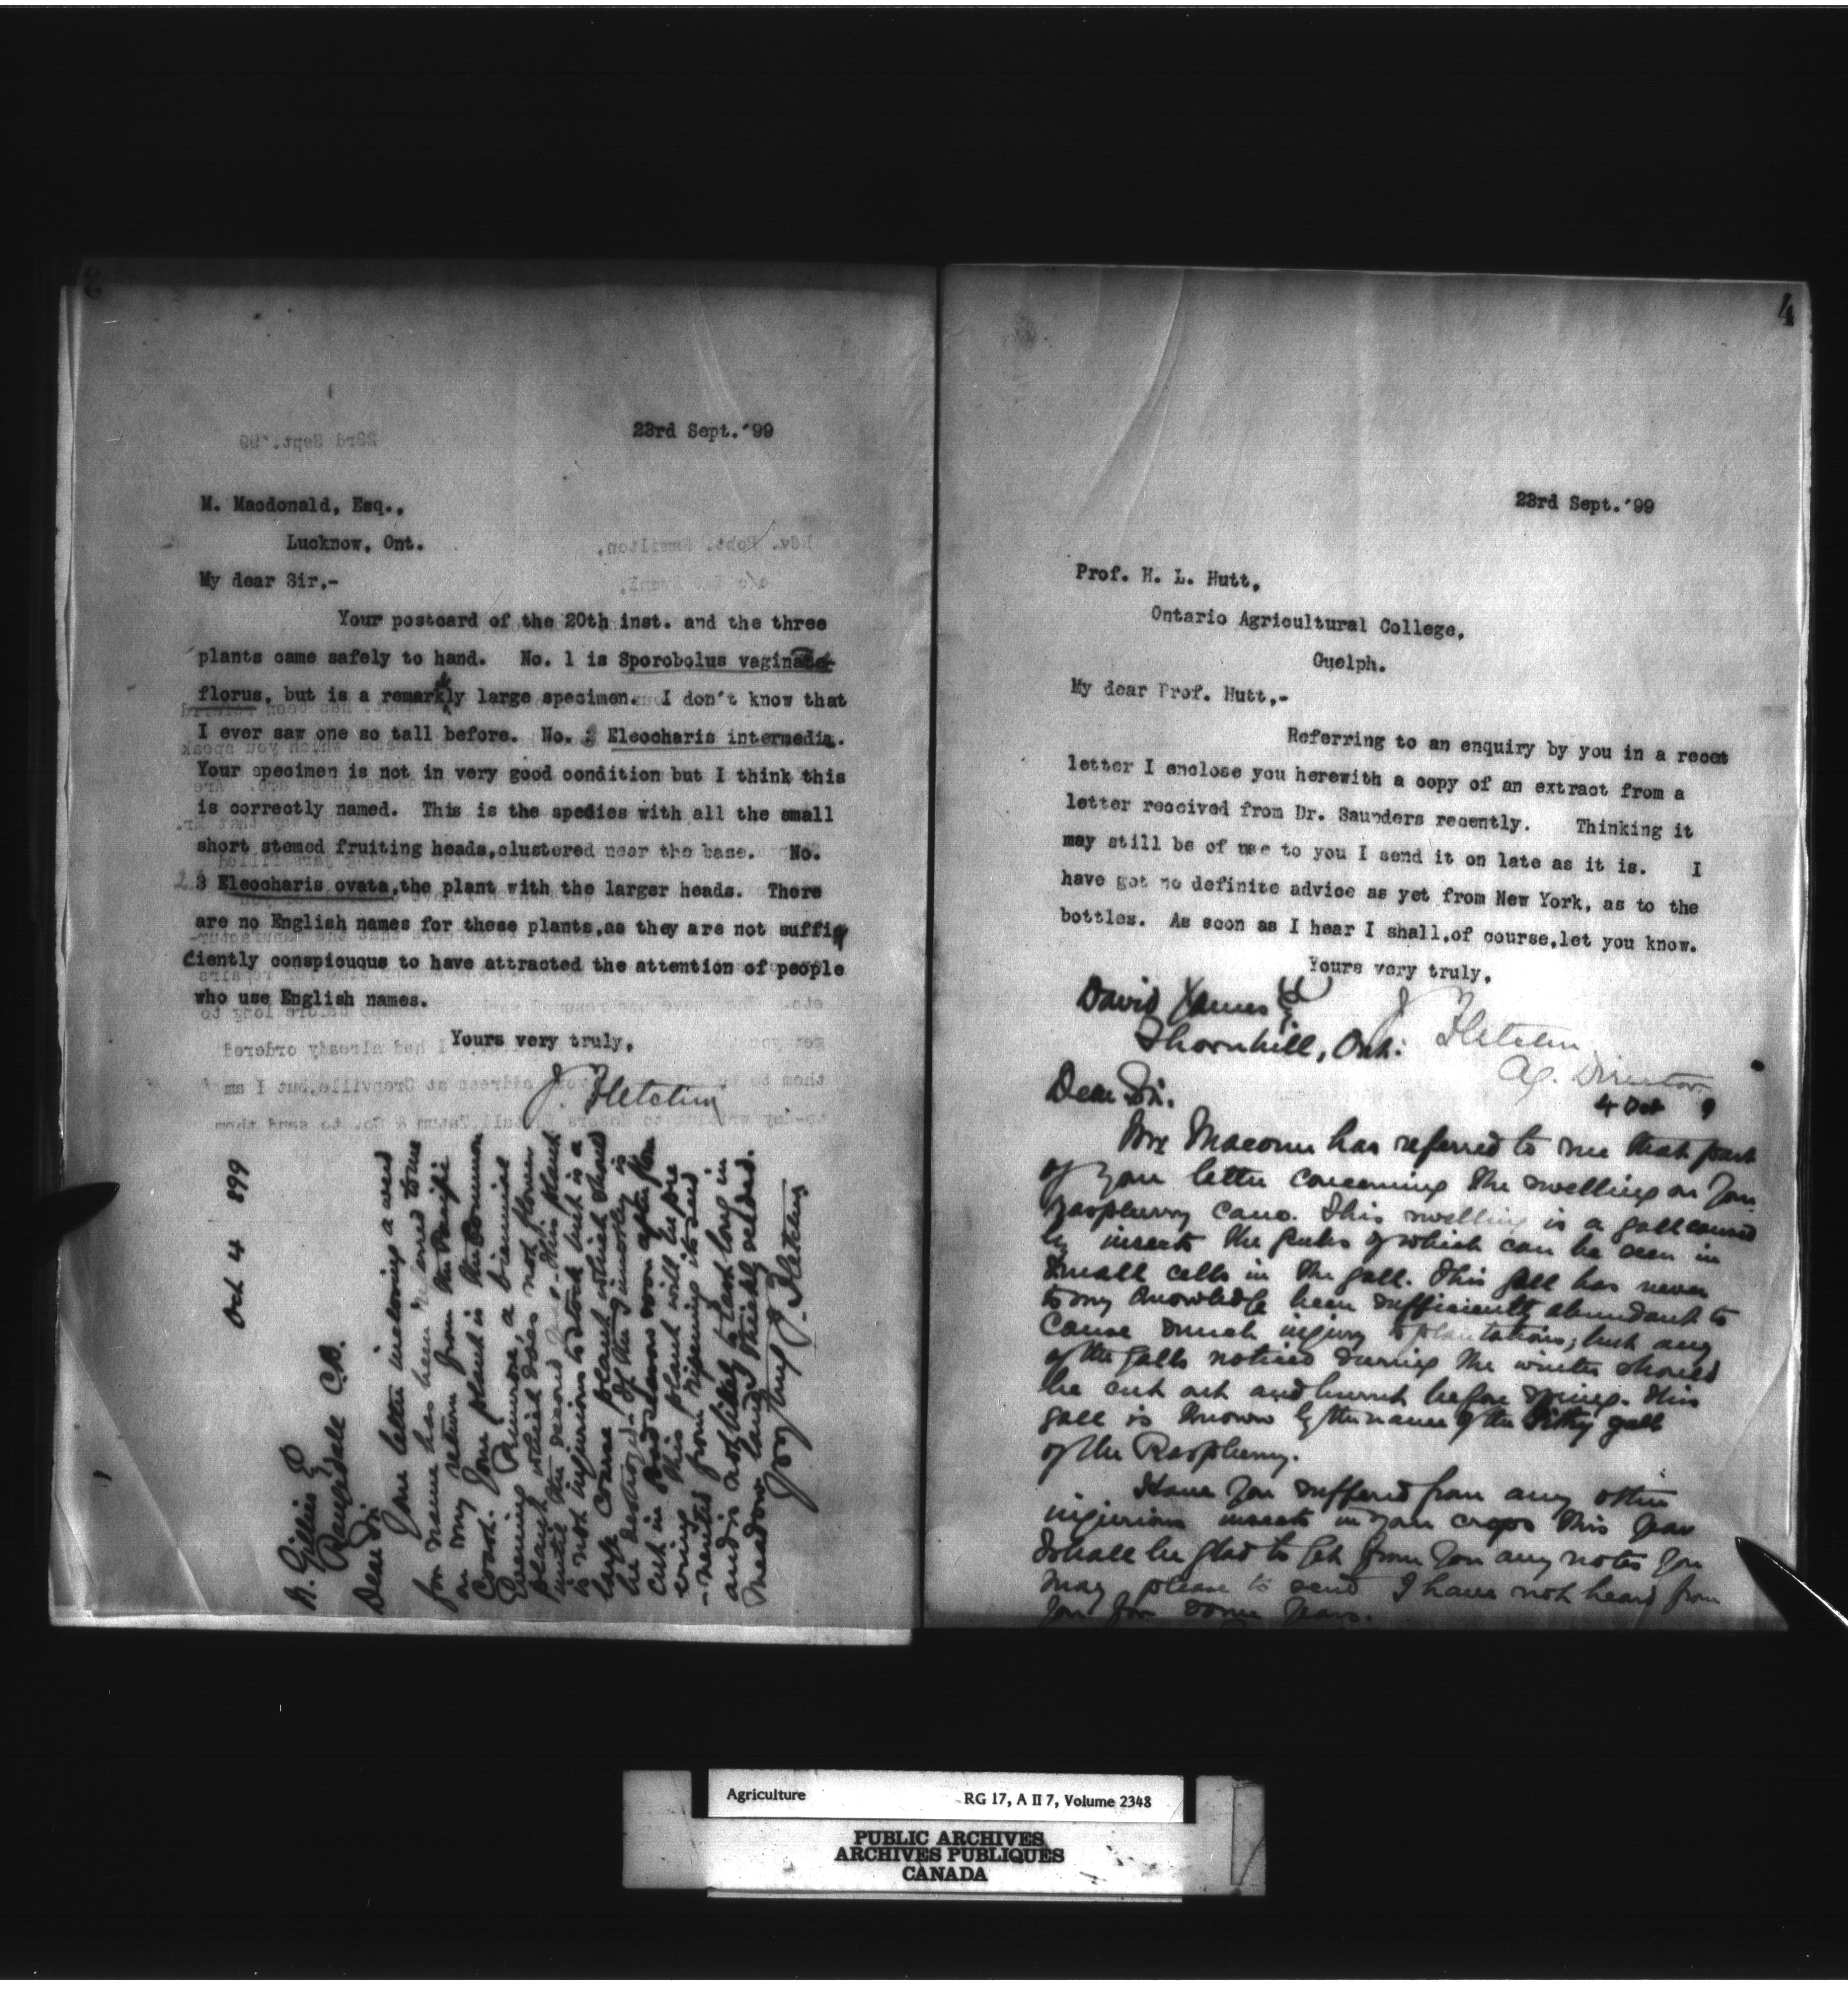 23rd Sept.'99
M. Macdonald, Esq.,
Lucknow, Ont.
My dear Sir,-
Your postcard of the 20th inst. and the three
plants came safely to hand. No. 1 is Sporobolus vaginae-
florus, but is a remarkly large specimen. I don't know that
I ever saw one so tall before. No. 2 Eleocharis intermedia.
Your specimen is not in very good condition but I think this
is correctly named. This is the spedies with all the small
short stemed fruiting heads,clustered near the base. No.
3 Eleocharis ovata,the plant with the larger heads. There
are no English names for these plants,as they are not suffi
ciently conspicuqus to have attracted the attention of people
who use English names.
Yours very truly,
J. Fletcher
Oct 4 899
A. Gillies E
Dale C.B.
Dear Sir
Your letter inclosing a weed
for name has been to me
on my return from the Pacific
Coast. Your plant is the Common
Evening Primrose, a biennial
plant which does not flower
until the second year. This plant
is not injurious to stock but is a
large coarse plant which should
be destroyed. If the is
cut in soon after
this plant will be pre
-vented from ripening its seed
and is not likely to last long in
meadow land thickly seeded.
Yrs truly J. Fletcher
4
23rd Sept.'99
Prof. H. L. Hutt,
Ontario Agricultural College,
Guelph.
My dear Prof. Hutt,-
Referring to an enquiry by you in a recent
letter I enclose you herewith a copy of an extract from a
letter received from Dr. Saunders recently. Thinking it
may still be of use to you I send it on late as it is. I
have got no definite advice as yet from New York, as to the
bottles. As soon as I hear I shall,of course,let you know.
Yours very truly,
J Fletcher
Ag. Director
David James E
Thornhill, Ont:
4 Oct 9
Dear Sir.
Mr Macoun has referred to me that part
of your letter concerning the swelling on your
raspberry cane. This swelling is a gall caused
by insects the grubs of which can be seen in
small cells in the gall. This gall has never
to my knowledge been sufficiently abundant to
cause much injury to plantations; but any
of the galls noticed during the winter should
be cut out and burnt before spring. This
gall is known by the name of the Pithy gall
of the Raspberry.
Have you suffered from any other
injurious insects in your crops this year
I shall be glad to get from you any notes you
may please to send I have not heard from
you for some years.
Agriculture RG 17, A II 7, Volume 2348
PUBLIC ARCHIVES
ARCHIVES PUBLIQUES
CANADA